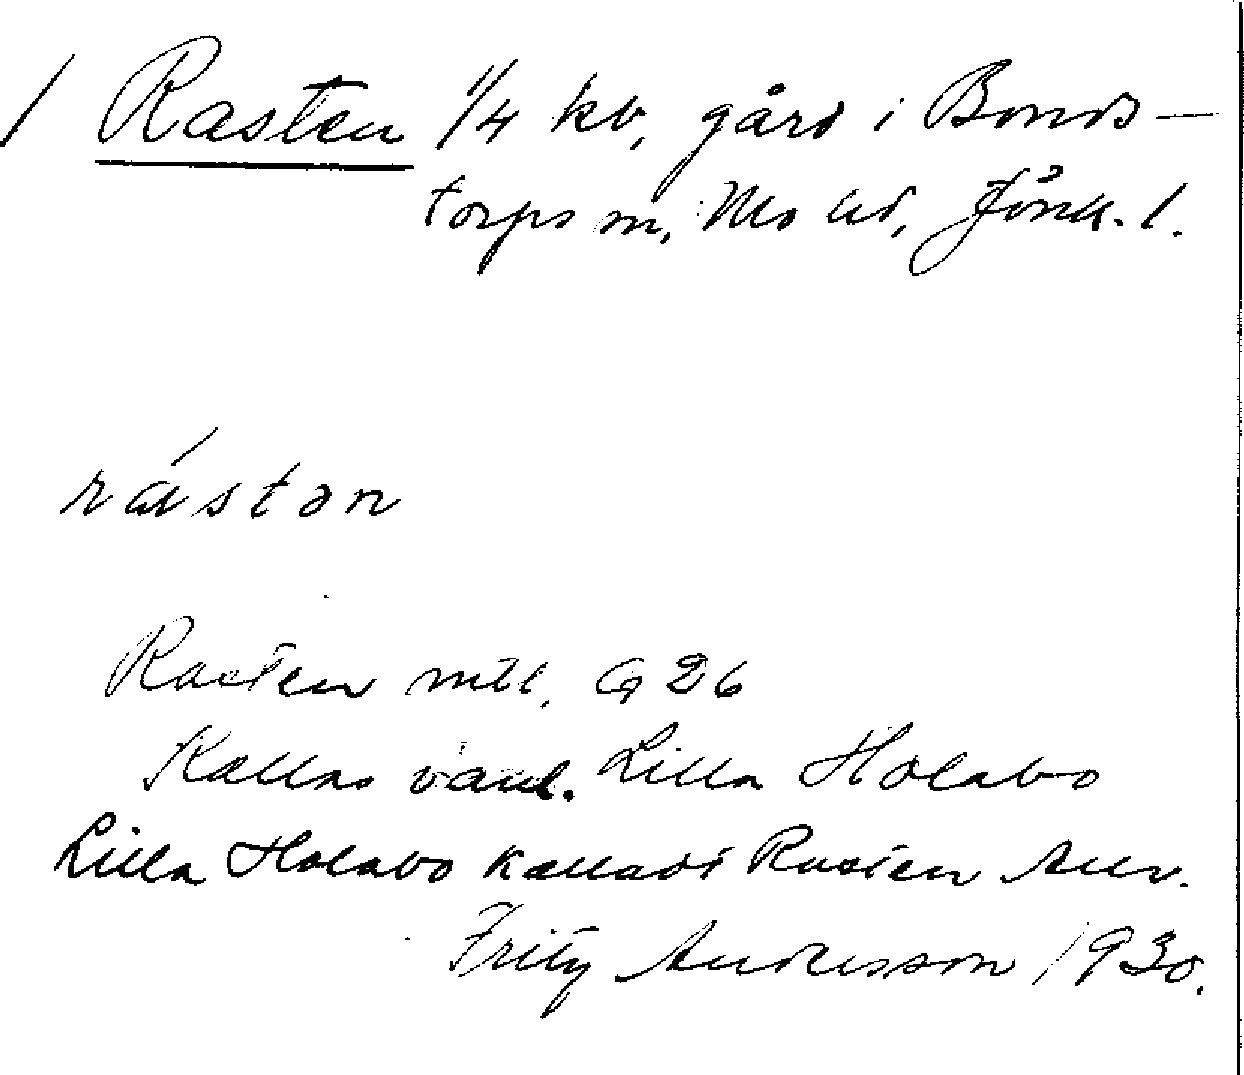 / Rasten 1/4 kb, gård i Bonds-
torps sn, Mo hd, Jönk. l.
rástən
Rasten mtl, G 26
Kallas vanl. Lilla Holabo
Lilla Holabo kalladt Rasten
Fritz Andersson 1930.